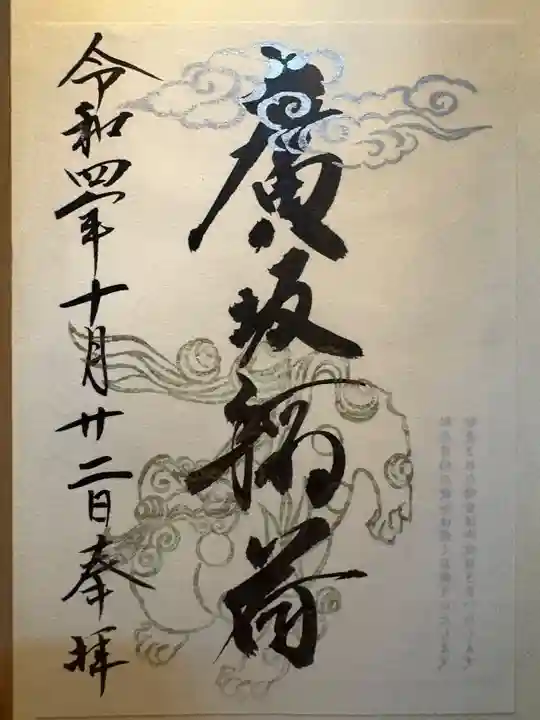 廣坂稲荷
令和四年十月廿二日奉拝